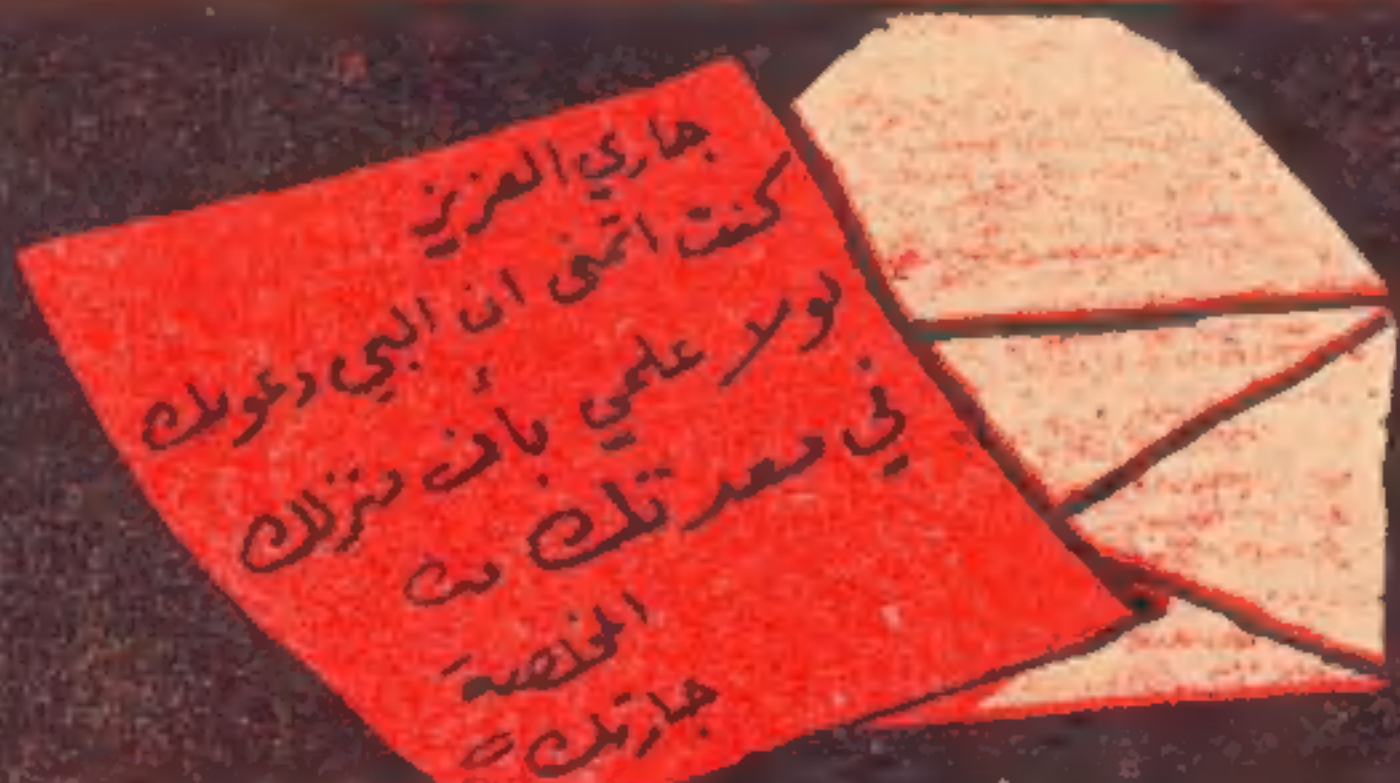 جاري العزيز
كنت اتمنى ان البي دعوتك
لولا علمي بأن منزلك
في معدتك
المخلصة
جارتك